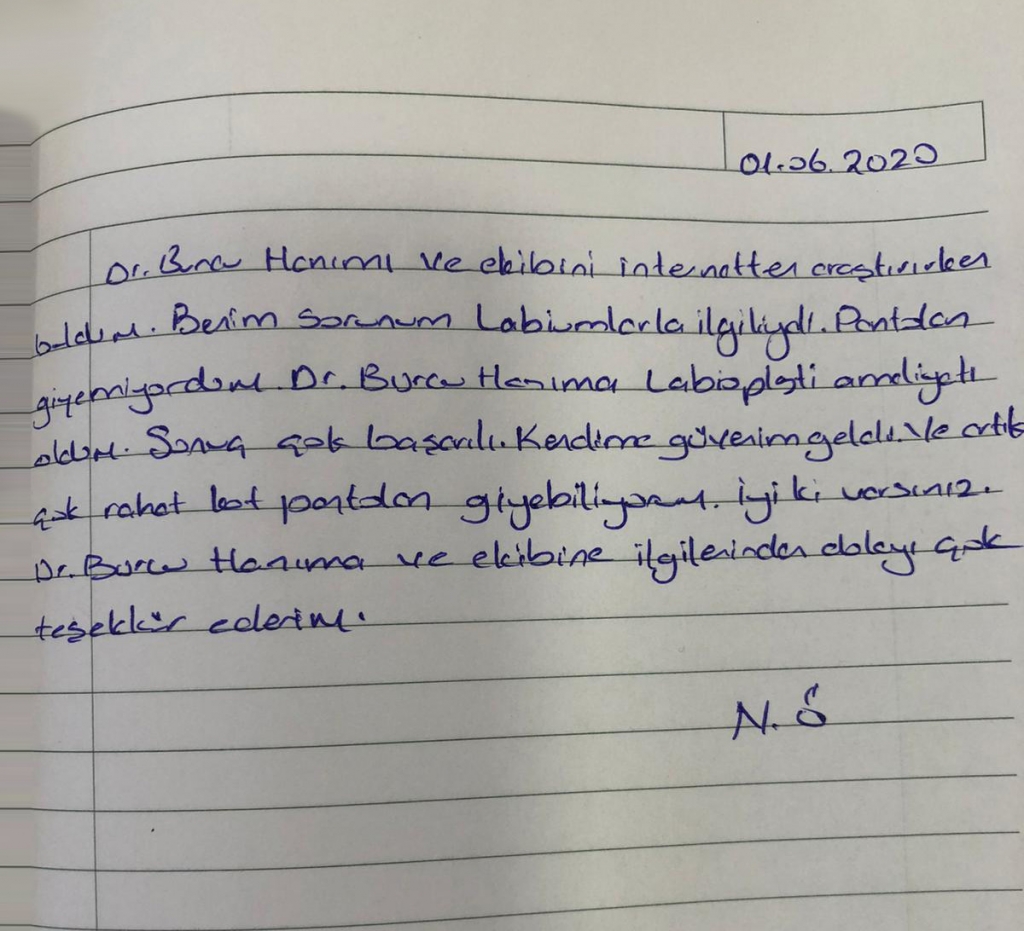 01.06.2020
Dr. Burcu Hanımı ve ekibini internetten araştırırken
buldum. Benim sorunum Labiumlarla ilgiliydi. Pantolon
giyemiyordum. Dr. Burcu Hanıma Labioplasti ameliyatı
oldum. Sonuç çok başarılı. Kendime güvenim geldi. Ve artık
çok rahat kot pantolon giyebiliyorum. İyi ki varsınız.
Dr. Burcu Hanıma ve ekibine ilgilerinden dolayı çok
teşekkür ederim.
N. Ö